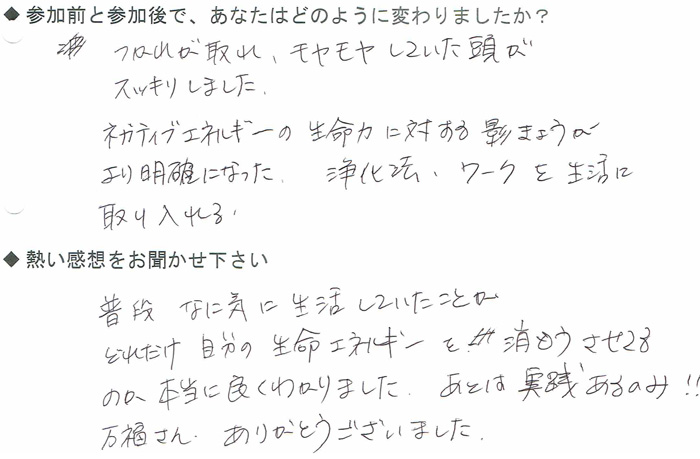 ◆ 参加前と参加後で、あなたはどのように変わりましたか？
つかれが取れ、モヤモヤしていた頭が
スッキリしました。
ネガティブエネルギーの生命力に対する影きょうが
より明確になった。浄化法、ワークを生活に
取り入れる。
◆ 熱い感想をお聞かせ下さい
普段なに気に生活していたことが
どれだけ自分の生命エネルギーを消もうさせてる
のか本当に良くわかりました。あとは実践あるのみ!!
万福さん。ありがとうございました。